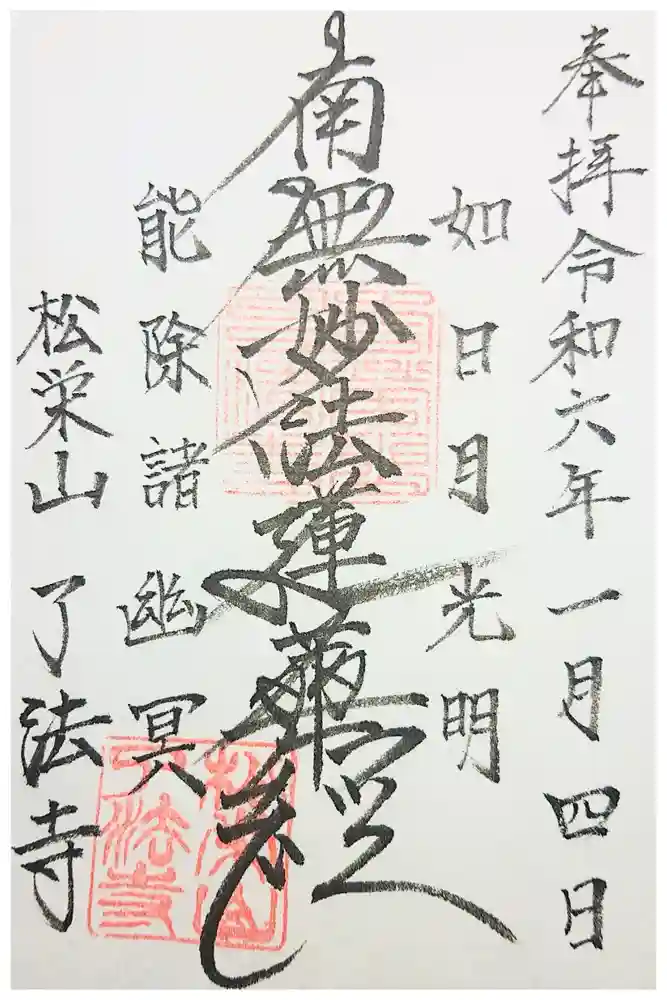 奉拝令和六年一月四日
如日月光明
南無妙法蓮華経
能除諸幽冥
松栄山了法寺
松栄山
了法寺